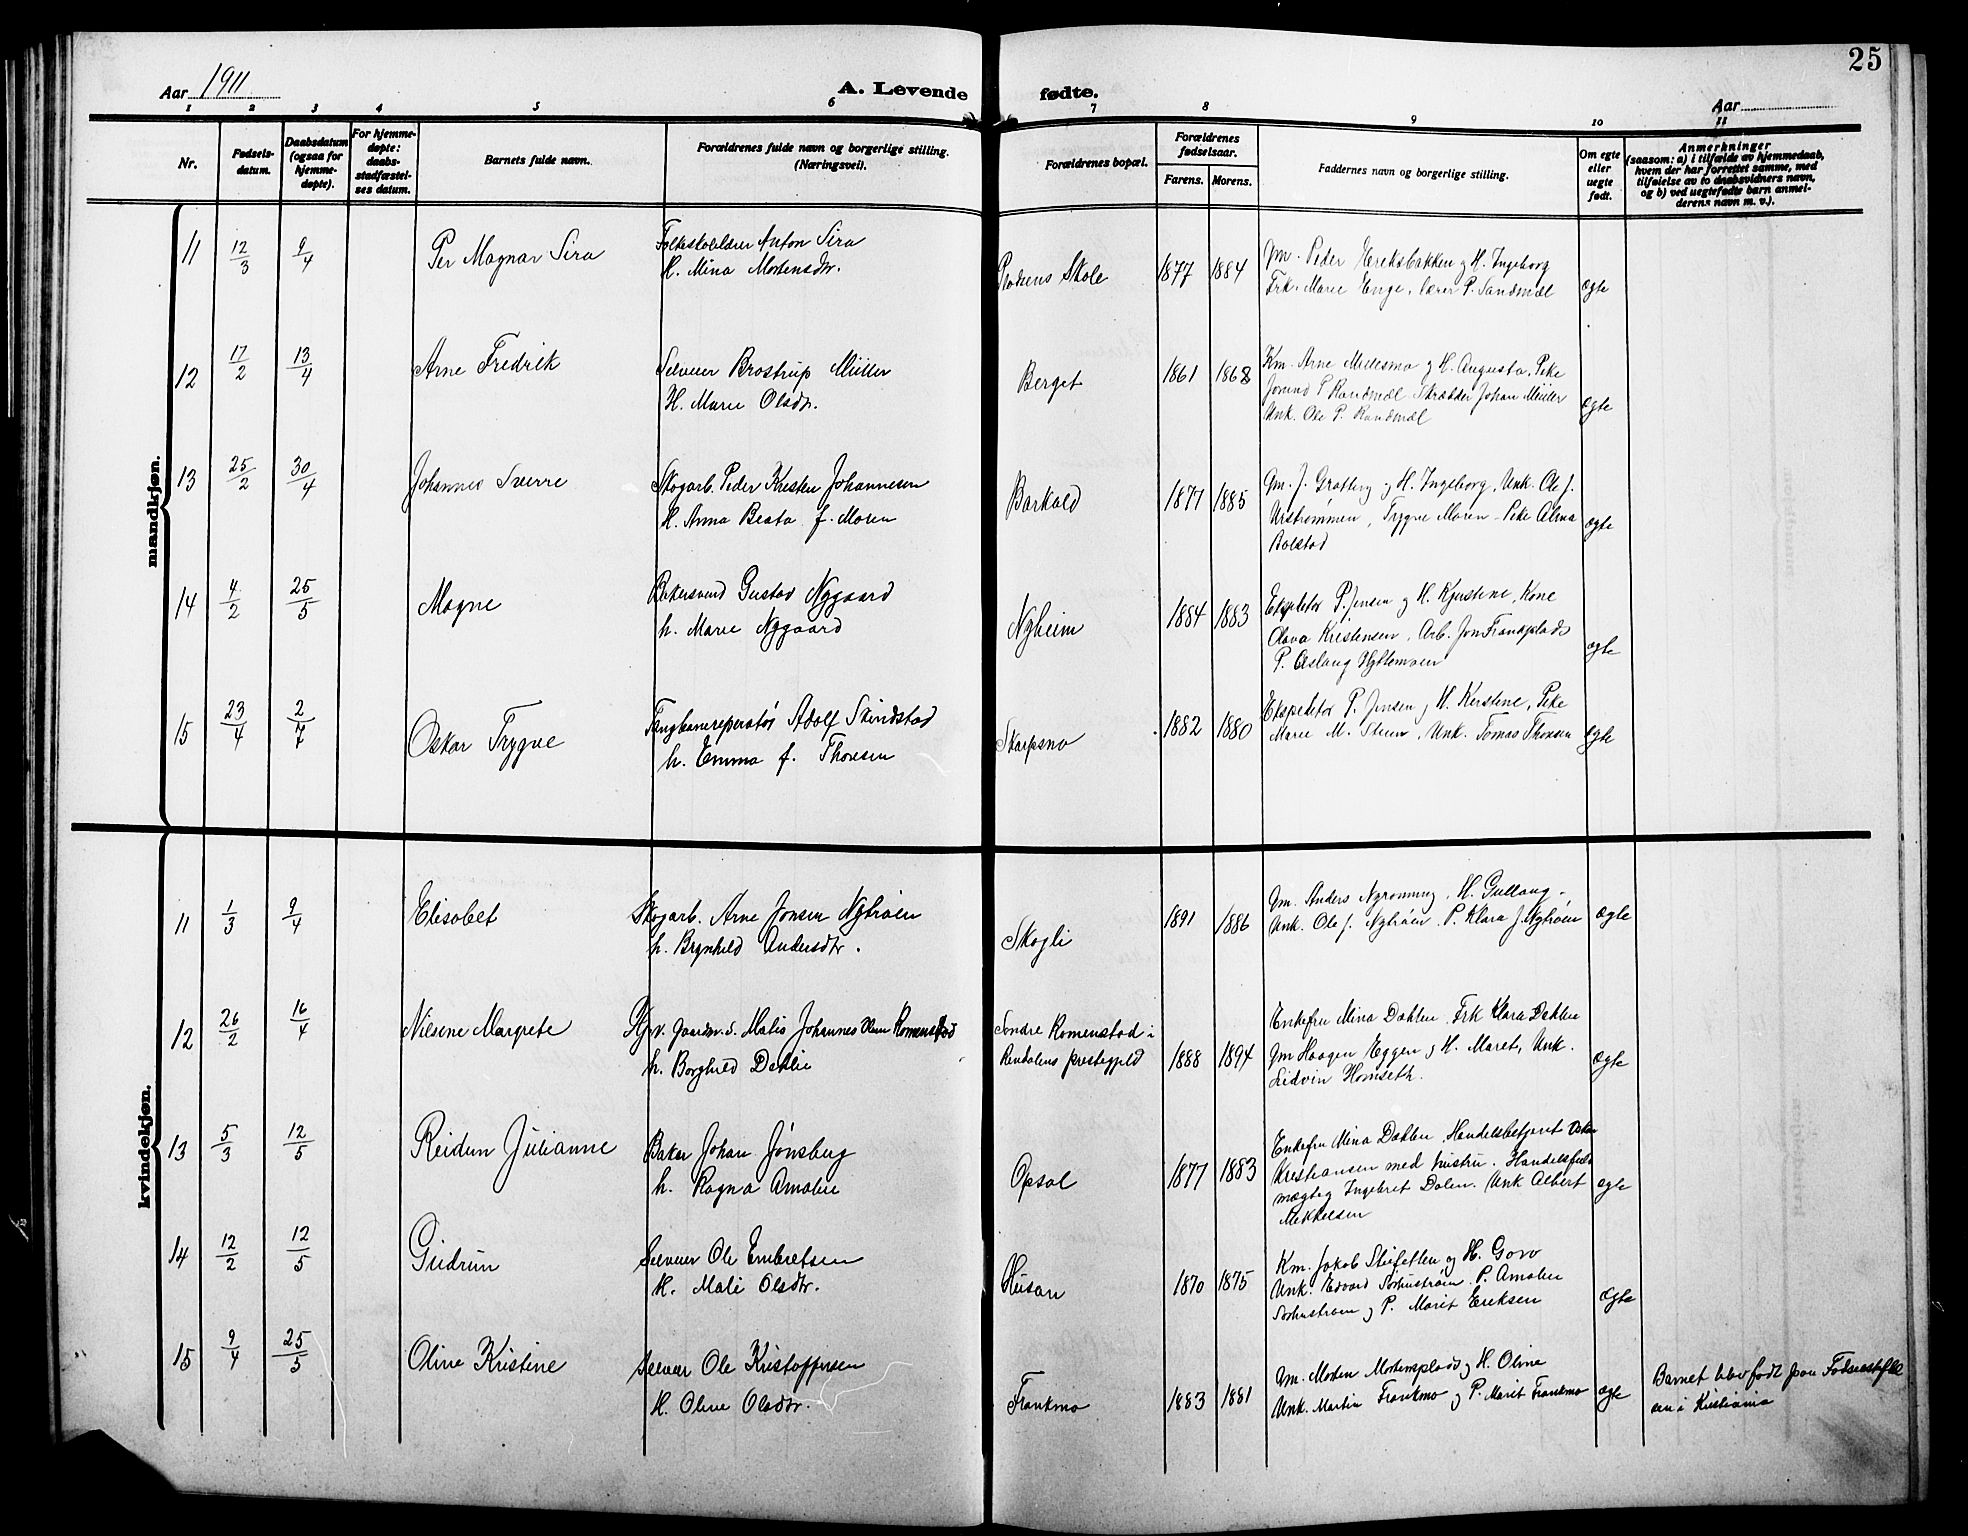 25
Aar 1911
A. Levende fødte.
Aar
1 2 3 4 5 6 7 8 9 10 11
Nr.
Fødsels-
datum.
Daabsdatum
(ogsaa for
hjemme-
døpte).
For hjemme-
døpte:
daabs-
stadfæstel-
ses datum.
Barnets fulde navn.
Forældrenes fulde navn og borgerlige stilling.
(Næringsvei).
Forældrenes bopæl.
Forældrenes
fødselsaar.
Farens. Morens.
Faddernes navn og borgerlige stilling.
Om egte
eller
uegte
født.
Anmerkninger
(saasom: a) i tilfælde av hjemmedaab,
hvem der har forrettet samme, med
tilføielse av to daabsvidners navn,
og b) ved uegtefødte barn anmel-
derens navn m. v.).
mandkjøn.
11 12/3 9/4 Per Magnar Sira
Anton Sira
H. Mina Mortensdtr.
Skole 1877 1884
Gm. Peder Eriksbakken og H. Ingeborg
Frk. Marie Enge, lærer P. Sandmæl
ægte
12 17/2 13/4 Arne Fredrik
Selveier Brostrup Müller
H. Marie Olsdtr.
Berget 1861 1868
Km. Arne Mellesmo og H. Augusta, Pike
Jorund P. Randmæl Skrædder Johan Müller
Unk. Ole P. Randmæl
ægte
13 25/2 30/4 Johannes Sverre
Skogarb. Peder Kristen Johannesen
H. Anna Beata f. Moren
Barkald 1877 1885
Gm. J. Gratberg og H. Ingeborg, Unk. Ole J.
Urstrømmen, Trygve Moren - Pike Alma
Bolstad
ægte
14 4/2 25/5 Magne
Bakersvend Gustav Nygaard
h. Marie Nygaard
Nyheim 1884 1883
Ekspeditør P. Jensen og H. Kjerstine, Kone
Olava Kristensen, Arb. Jon Frankplads
P. Aslaug Hyttemoen
ægte
15 23/4 2/7 Oskar Trygve
Adolf Skindstad
h. Emma f. Thoresen
Skarpsno 1882 1880
Ekspeditør P. Jensen og H. Kerstine, Pike
Marie M. Steen, Unk. Tomas Thoresen
ægte
kvindekjøn.
11 1/3 9/4 Elisabet
Skogarb. Arne Jonsen Nytrøen
h. Brynhild Andersdtr.
Skogli 1891 1886
Gm. Anders Nyrønning, H. Gullaug -
Unk. Ole J. Nytrøen. P. Klara J. Nytrøen
ægte
12 26/2 16/4 Nilsene Margrete
Gaardm. s. Johannes Romenstad
h. Borghild Dahlie
Søndre Romenstad i
Rendalens prestegjeld 1888 1894
Enkefru Mina Dahlen Frk Klara Dahlen
Gm Haagen Eggen og H. Maret, Unk.
Lidvin Homseth.
ægte
13 5/3 12/5 Reidun Julianne
Baker Johan Jønsberg
h. Ragna Amalie
Opsal 1877 1883
Enkefru Mina Dahlen, Handelsbetjent Oskar
Kristiansen med hustru. Handelsfuld
mægtig Ingebret Dalen. Unk Albert
Mikkelsen
ægte
14 12/2 12/5 Gudrun
Selveier Ole Embretsen
H. Mali Olsdtr.
Husan 1870 1875
Km. Jakob Steifetten og H. Goro
Unk. Edvard Sørhustrøen. P. Amalie
Sørhustrøen og P. Marit Eriksen
ægte
15 9/4 25/5 Oline Kristine
Selveier Ole Kristoffersen
H. Oline Olsdtr.
Frankmo 1883 1881
Gm. Morten Mortensplads og H. Oline
Unk. Martin Frankmo og P. Marit Frankmo
ægte
Barnet blev født paa Fødselsstiftel
sen i Kristiania